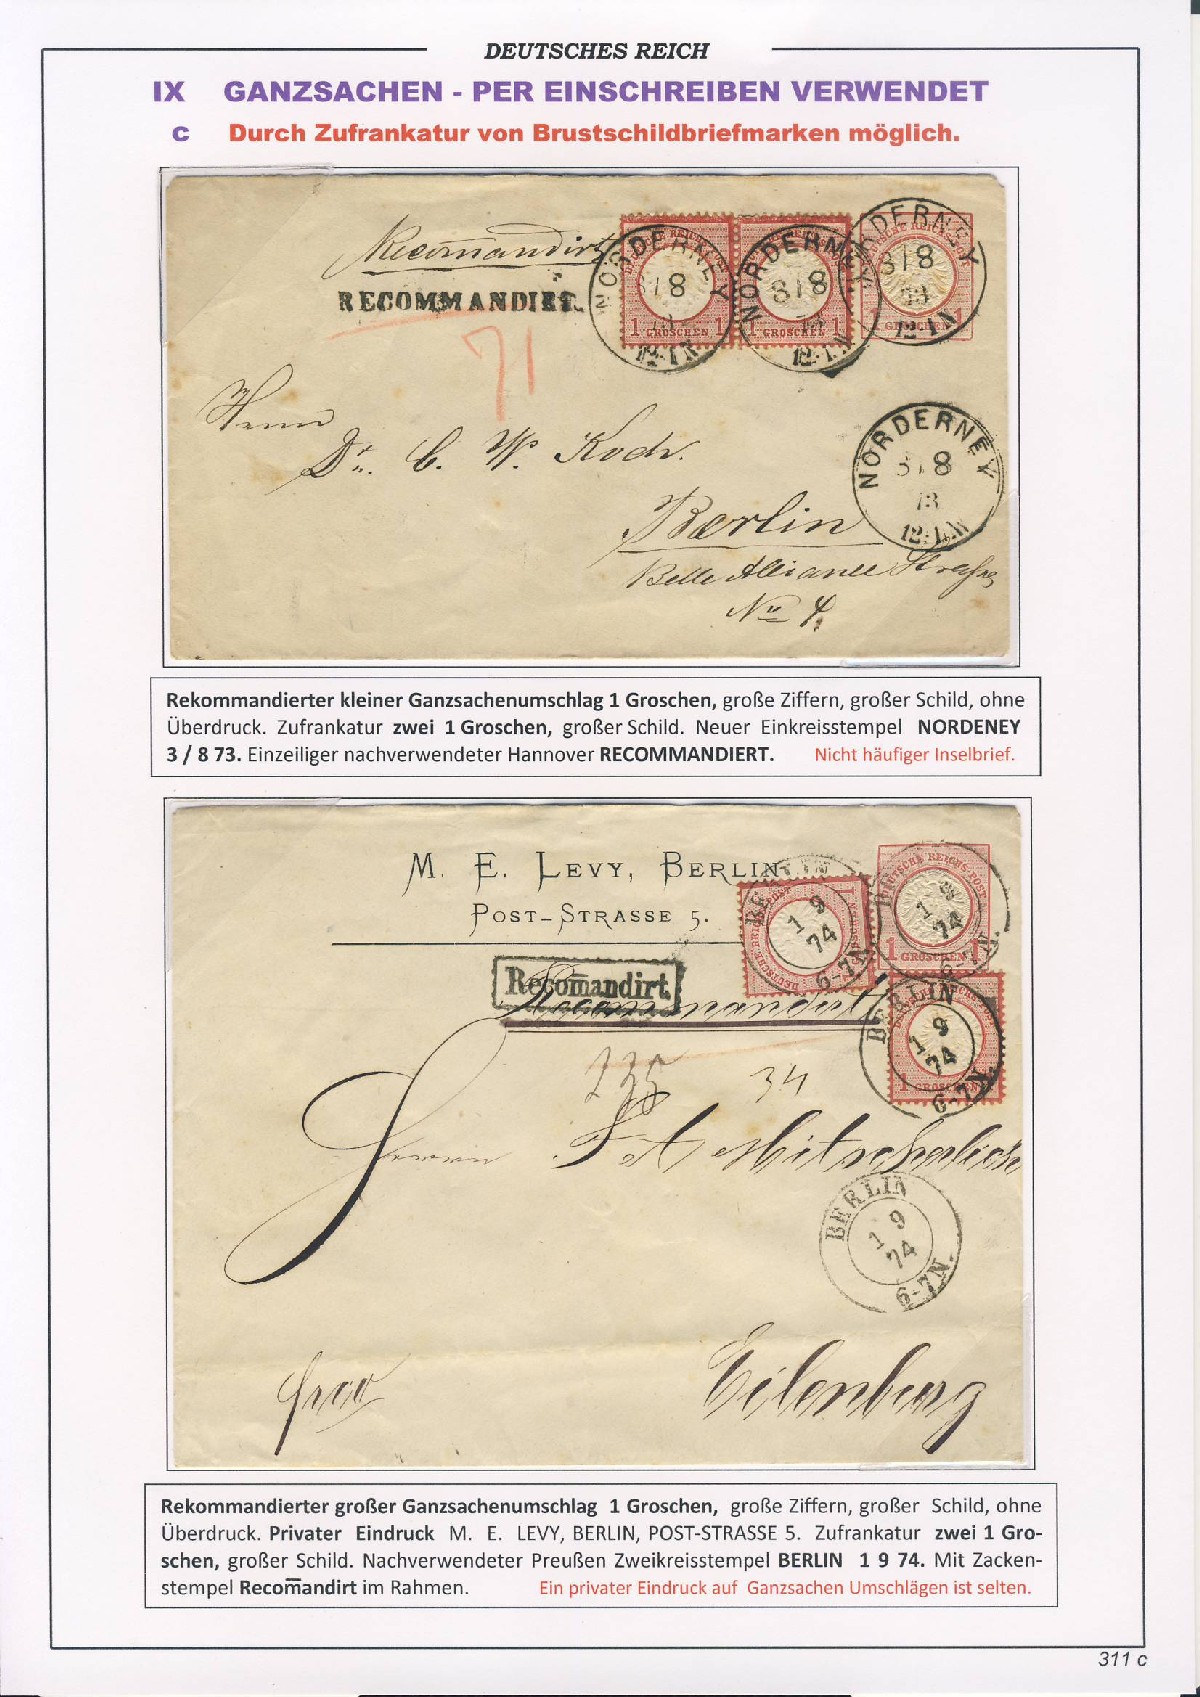 DEUTSCHES REICH
IX GANZSACHEN - PER EINSCHREIBEN VERWENDET
c Durch Zufrankatur von Brustschildbriefmarken möglich.
Recomandirt
RECOMMANDIRT.
71
NORDERNEY
3 / 8
12-1N
1 GROSCHEN 1
NORDERNEY
3 / 8
73
12-1N
1 GROSCHEN 1
NORDERNEY
3 / 8
73
12-1N
1 GROSCHEN 1
NORDERNEY
3 / 8
73
12-1N
Herrn
Dr. C. W. Koch.
Berlin
Belle Alliance Strasse
No 4.
Rekommandierter kleiner Ganzsachenumschlag 1 Groschen, große Ziffern, großer Schild, ohne
Überdruck. Zufrankatur zwei 1 Groschen, großer Schild. Neuer Einkreisstempel NORDENEY
3 / 8 73. Einzeiliger nachverwendeter Hannover RECOMMANDIERT. Nicht häufiger Inselbrief.
M. E. LEVY, BERLIN
POST-STRASSE 5.
BERLIN
1 9
74
6-7N.
DEUTSCHE REICHS-POST
1 GROSCHEN 1
1 9
74
6-7N.
Recom̅andirt.
Recommandirt
BERLIN
1 9
74
6-7N.
1 GROSCHEN 1
34
Herrn F A
BERLIN
1 9
74
6-7N.
frco
Eilenburg
Rekommandierter großer Ganzsachenumschlag 1 Groschen, große Ziffern, großer Schild, ohne
Überdruck. Privater Eindruck M. E. LEVY, BERLIN, POST-STRASSE 5. Zufrankatur zwei 1 Gro-
schen, großer Schild. Nachverwendeter Preußen Zweikreisstempel BERLIN 1 9 74. Mit Zacken-
stempel Recom̅andirt im Rahmen. Ein privater Eindruck auf Ganzsachen Umschlägen ist selten.
311 c